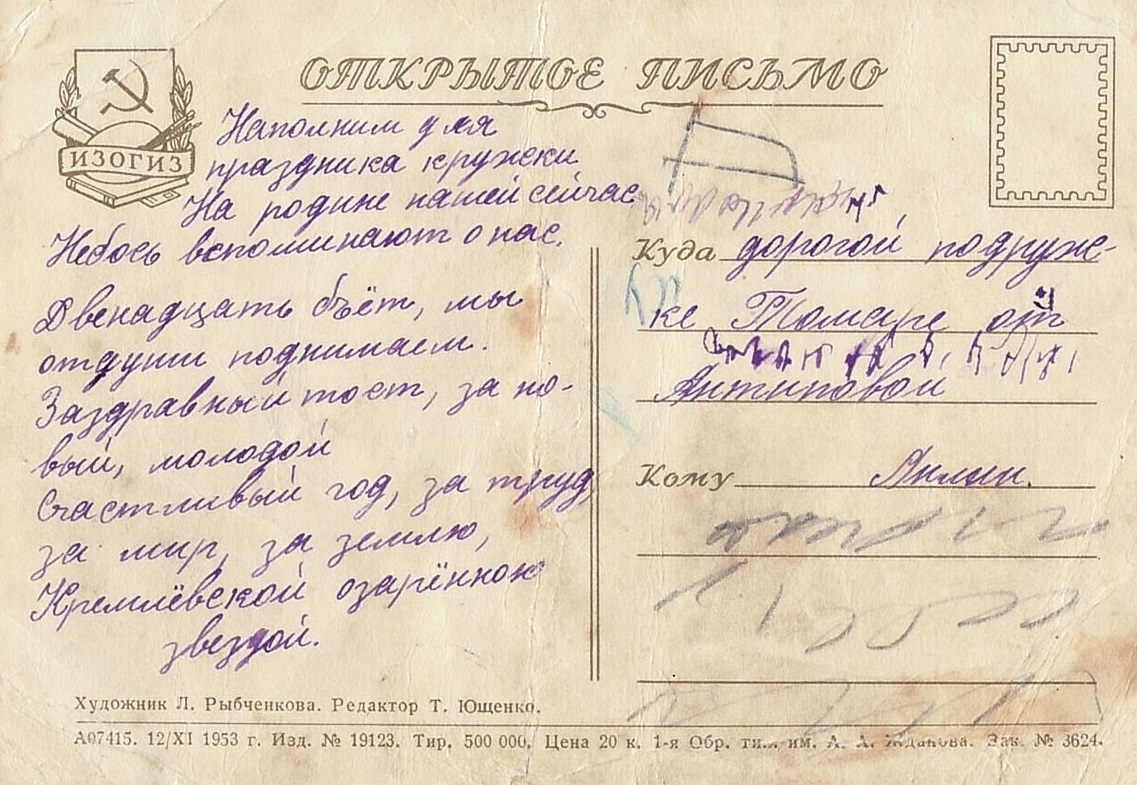 ОТКРЫТОЕ ПИСЬМО
ИЗОГИЗ
Наполним для
праздника кружеки
На родине нашей сейчас,
Небось вспоминают о нас.
Двенадцать бьёт, мы
отдуши поднимаем.
Заздравный тост, за но-
вый, молодой
Счастливый год, за труд
за мир, за землю,
Кремлёвской озарённою
звездой.
Куда дорогой подруж-
ке Томаре от
Антиповой
Кому
Художник Л. Рыбченкова. Редактор Т. Ющенко.
А07415. 12/XI 1953 г. Изд. № 19123. Тир. 500 000. Цена 20 к. 1-я Обр. тип. им. А. А. Жданова. Зак. № 3624.